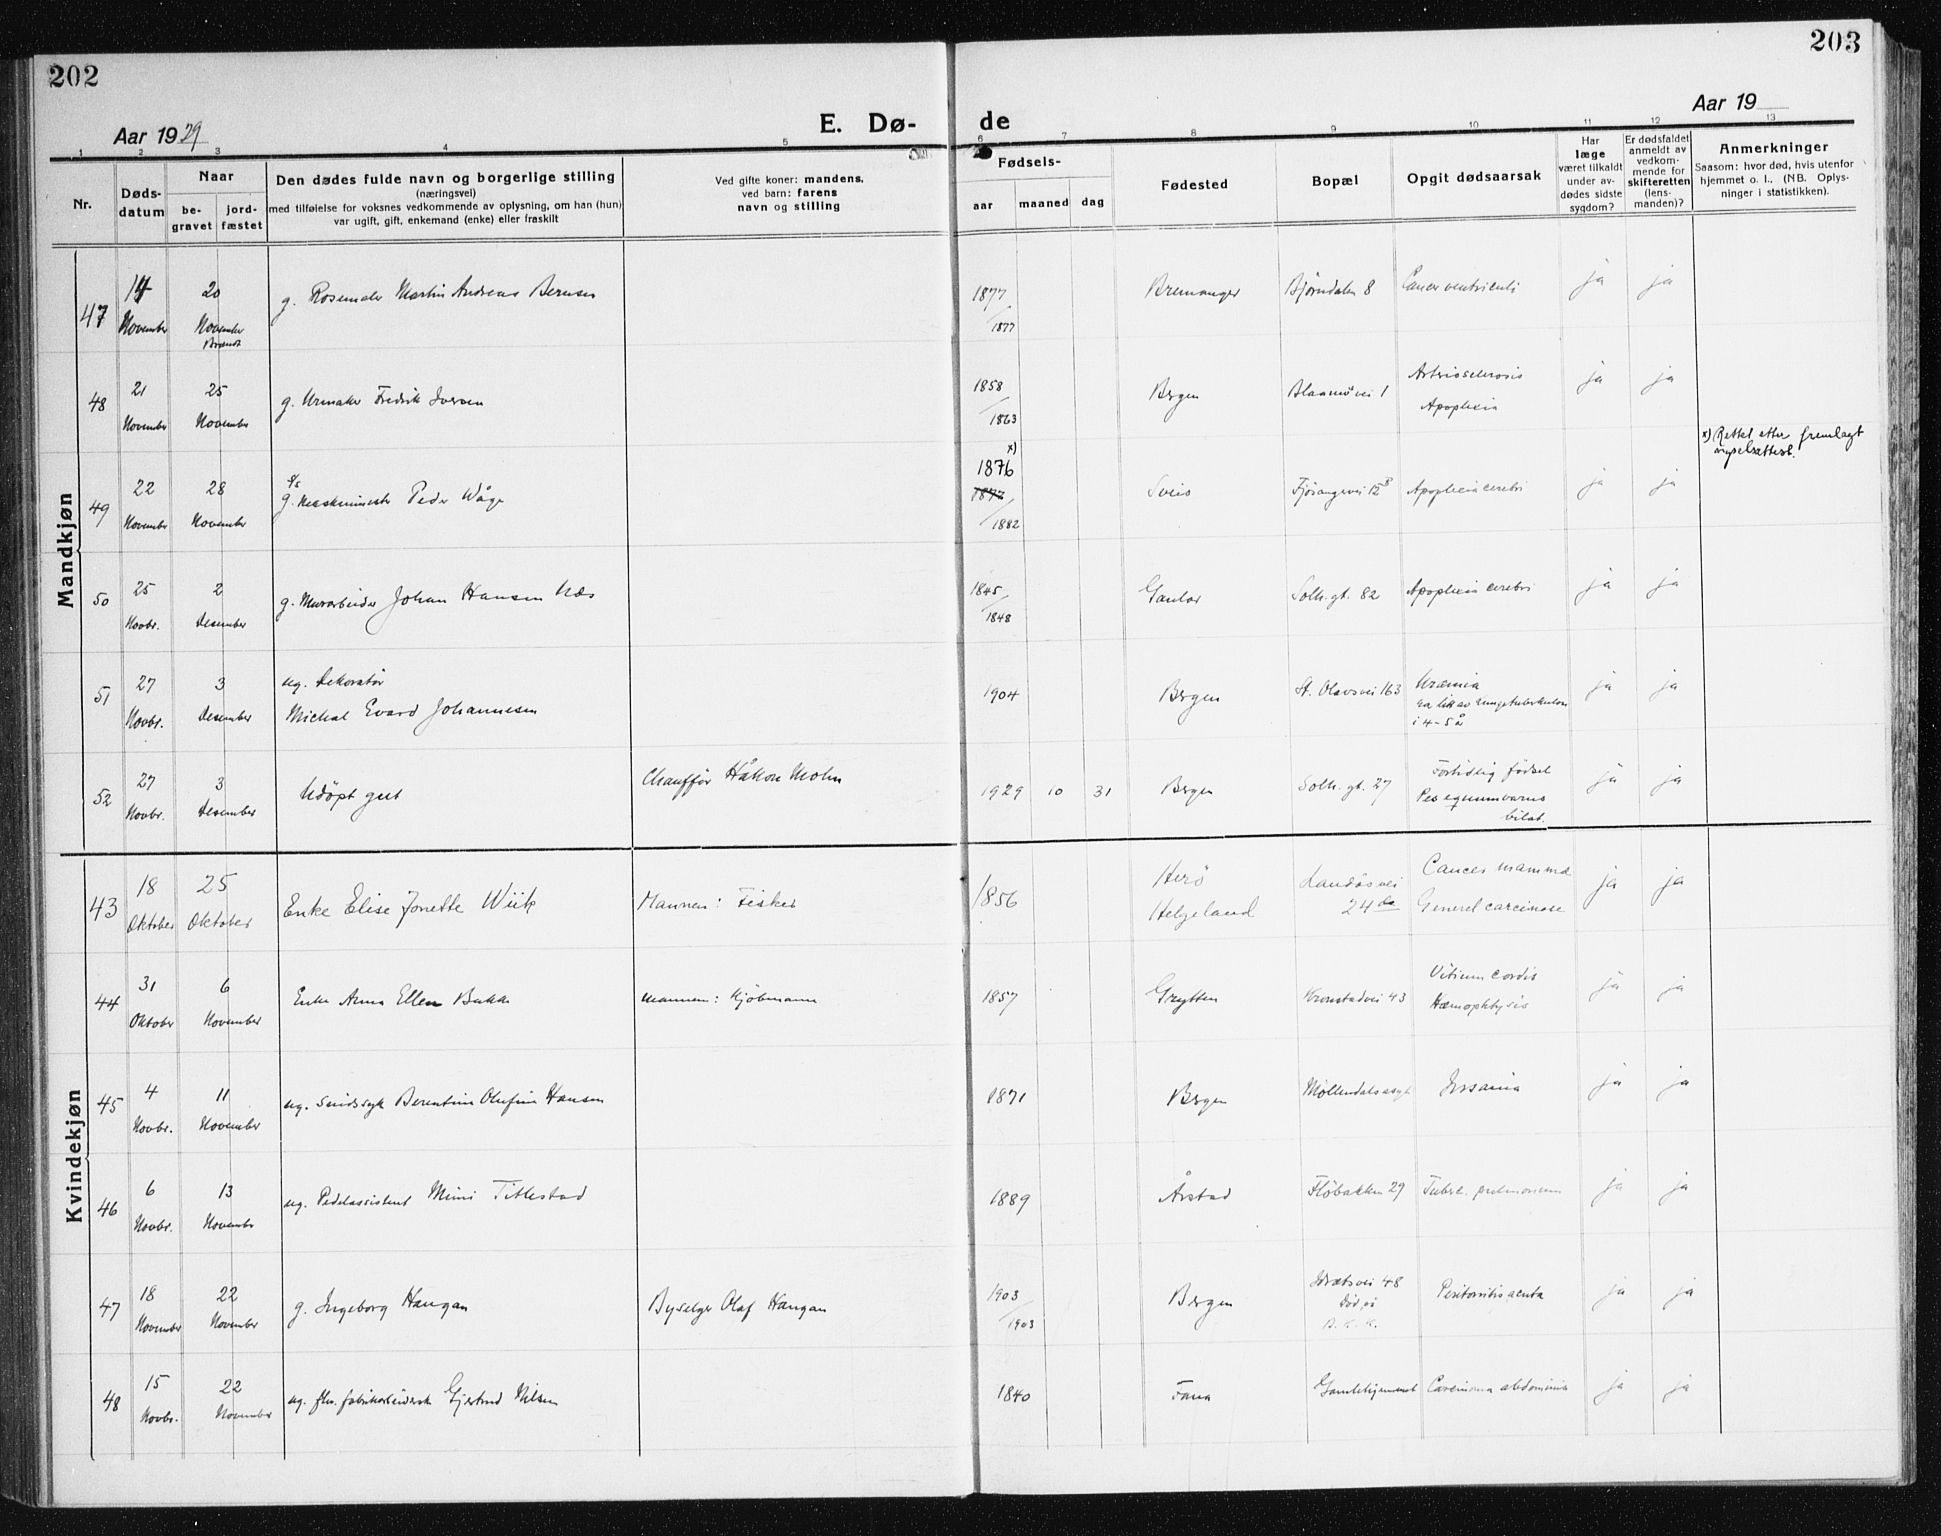 202
203
Aar 1929
E. Dø-
de
Aar 19
1 2 3 4 5 6 7 8 9 10 11 12 13
Nr.
Døds-
datum
Naar
be-
gravet
jord-
fæstet
Den dødes fulde navn og borgerlige stilling
(næringsvei)
med tilføielse for voksnes vedkommende av oplysning, om han (hun)
var ugift, gift, enkemand (enke) eller fraskilt
Ved gifte koner: mandens,
ved barn: farens
navn og stilling
Fødsels-
aar
maaned
dag
Fødested
Bopæl
Opgit dødsaarsak
Har
læge
været tilkaldt
under av-
dødes sidste
sygdom?
Er dødsfaldet
anmeldt av
vedkom-
mende for
skifteretten
(lens-
manden)?
Anmerkninger
Saasom: hvor død, hvis utenfor
hjemmet o. l., (NB. Oplys-
ninger i statistikken).
Mandkjøn
47
14
November
20
November
Brændt
g. Rosemaler Martin Andreas Bernsen
1877
/1877
Bremanger
Bjørndalen 8
Cancer ventriculi
ja
ja
48
21
November
25
November
g. Urmaker Fredrik Iversen
1858
/1863
Bergen
Blaamøvei 1
Arteriosclerosis
Apoplexia
ja
ja
49
22
November
28
November
g. Maskinmester Peder Våge
x)
1876
1877
/1882
Sveio
Fjøsangervei 12 B
Apoplexia cerebri
ja
ja
x) Rettet etter fremlagt
50
25
Novbr.
2
Desember
g. Murarbeider Johan Hansen Næs
1845
/1848
Gaular
Solh. gt. 82
Apoplexia cerebri
ja
ja
51
27
Novbr.
3
Desember
ug. Dekoratør
Michal Evard Johannesen
1904
Bergen
St. Olavsvei 163
Uræmia
i 4-5 år
ja
ja
52
27
Novbr.
3
Desember
Udøpt gut
Chauffør Håkon Mohn
1929 10 31
Bergen
Solh. gt. 27
Fortidlig fødsel
Pes equinovarus
bilat.
ja
ja
Kvindekjøn
43
18
Oktober
25
Oktober
Enke Elise Jonette Wiik
Mannen: Fisker
1856
Herö
Helgeland
Landåsvei
24
Cancer mamma
Generel carcinose
ja
ja
44
31
Oktober
6
November
Enke Anna Ellen Bakke
Mannen: Kjøbmann
1857
Grytten
Kronstadvei 43
Vitium cordis
Hæmophtysis
ja
ja
45
4
Novbr.
11
November
ug. Sindssyk Berentine Olufine Hansen
1871
Bergen
Møllendalsasyl
Insania
ja
ja
46
6
Novbr.
13
November
ug. Mimi Titlestad
1889
Årstad
Fløbakken 29
Tuberc. pulmonum
ja
ja
47
18
November
22
November
g. Ingeborg Haugan
Byselger Olaf Haugan
1903
/1903
Bergen
Idrætsvei 48
Død på
B. K. K.
Peritonitis acuta
ja
ja
48
15
Novbr.
22
November
ug. fhv. fabrikarbeiderske Gjertrud Nilsen
1840
Fana
Gamlehjemmet
Carcinoma abdominis
ja
ja